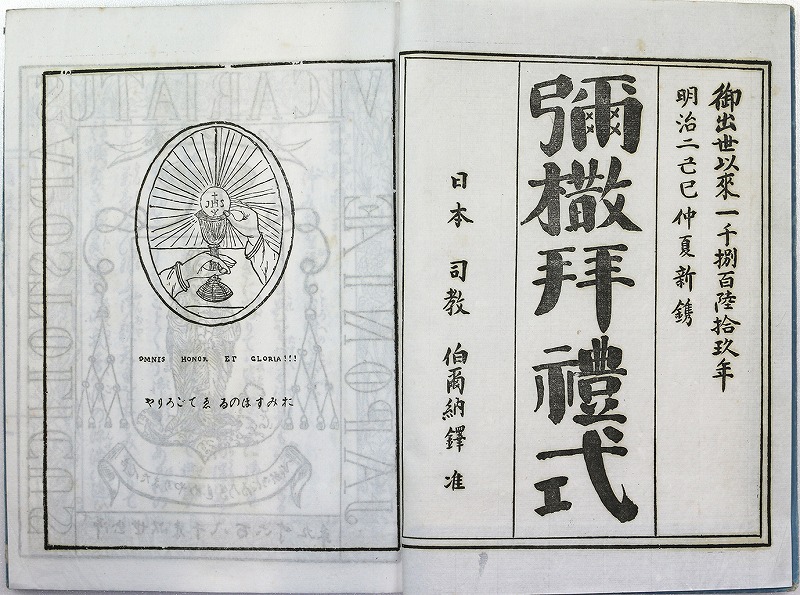 御出世以來一千捌百陸拾玖年
明治二己巳仲夏新鐫
彌撒拜禮式
日本 司教 伯爾納鐸 准
JHS
OMNIS HONOR ET GLORIA!!!
おみすほのる ゑ てごろりや
VICARIATUS
APOSTOLICUS
JAPONIAE